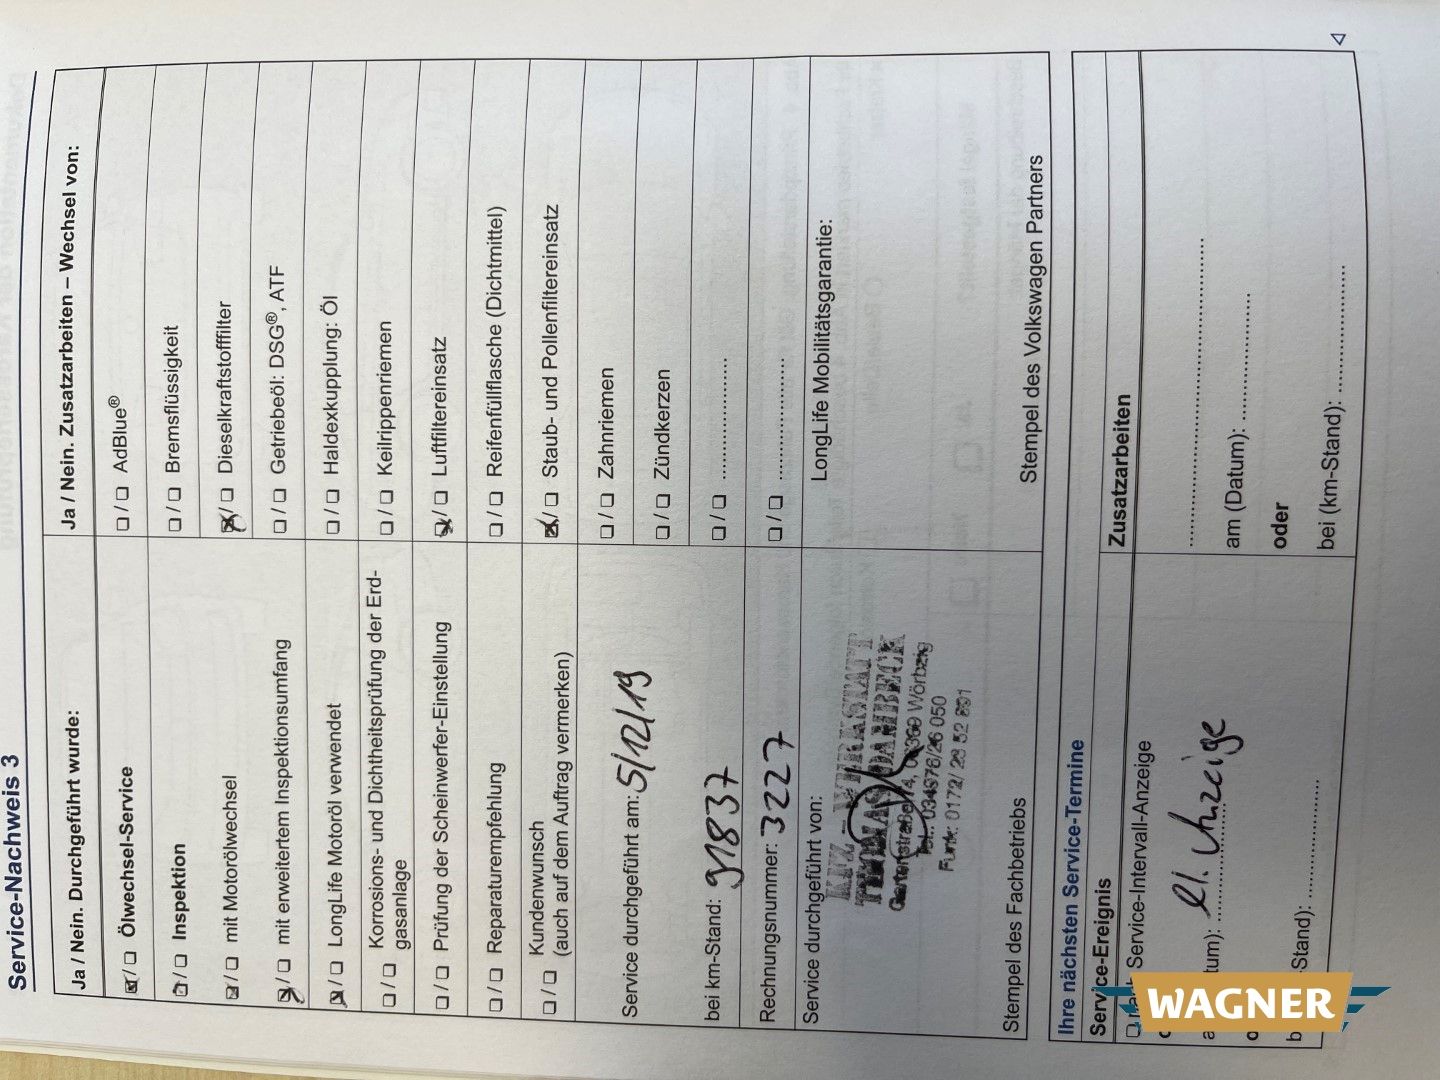 Service-Nachweis 3
Ja / Nein. Durchgeführt wurde:
☒/☐ Ölwechsel-Service
☒/☐ Inspektion
☒/☐ mit Motorölwechsel
☒/☐ mit erweitertem Inspektionsumfang
☒/☐ LongLife Motoröl verwendet
☐/☐ Korrosions- und Dichtheitsprüfung der Erd-
gasanlage
☐/☐ Prüfung der Scheinwerfer-Einstellung
☐/☐ Reparaturempfehlung
☐/☐ Kundenwunsch
(auch auf dem Auftrag vermerken)
Service durchgeführt am: 5/12/19
bei km-Stand: 91837
Rechnungsnummer: 3227
Ja / Nein. Zusatzarbeiten – Wechsel von:
☐/☐ AdBlue®
☐/☐ Bremsflüssigkeit
☒/☐ Dieselkraftstofffilter
☐/☐ Getriebeöl: DSG®, ATF
☐/☐ Haldexkupplung: Öl
☐/☐ Keilrippenriemen
☒/☐ Luftfiltereinsatz
☐/☐ Reifenfüllflasche (Dichtmittel)
☒/☐ Staub- und Pollenfiltereinsatz
☐/☐ Zahnriemen
☐/☐ Zündkerzen
☐/☐ ....................
☐/☐ ....................
Service durchgeführt von:
KFZ - WERKSTATT
THOMAS DAMBECK
Gartenstraße 4, Wörbzig
Tel.: 034976/26 050
Funk: 0172/
Stempel des Fachbetriebs
LongLife Mobilitätsgarantie:
Stempel des Volkswagen Partners
Ihre nächsten Service-Termine
Service-Ereignis
☐ Service-Intervall-Anzeige
tum): Anzeige
-Stand): ....................
Zusatzarbeiten
....................
am (Datum): ....................
oder
bei (km-Stand): ....................
WAGNER